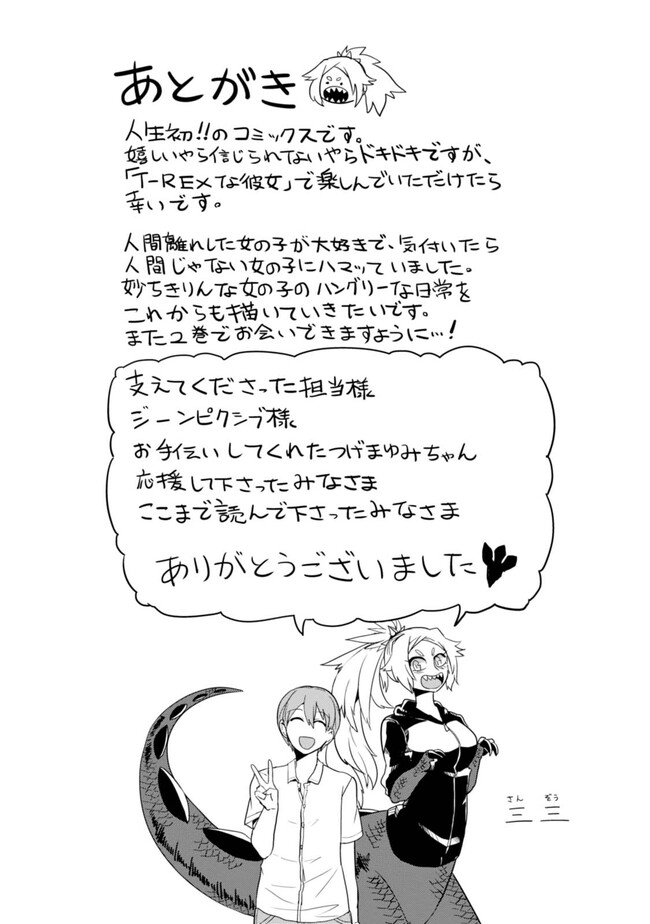 あとがき
人生初!!のコミックスです。
嬉しいやら信じられないやらドキドキですが、
「T-REXな彼女」で楽しんでいただけたら
幸いです。
人間離れした女の子が大好きで、気付いたら
人間じゃない女の子にハマッていました。
妙ちきりんな女の子のハングリーな日常を
これからも描いていきたいです。
また2巻でお会いできますように…!
支えてくださった担当様
ジーンピクシブ様
お手伝いしてくれたつげまゆみちゃん
応援して下さったみなさま
ここまで読んで下さったみなさま
ありがとうございました
さん ぞう
三三